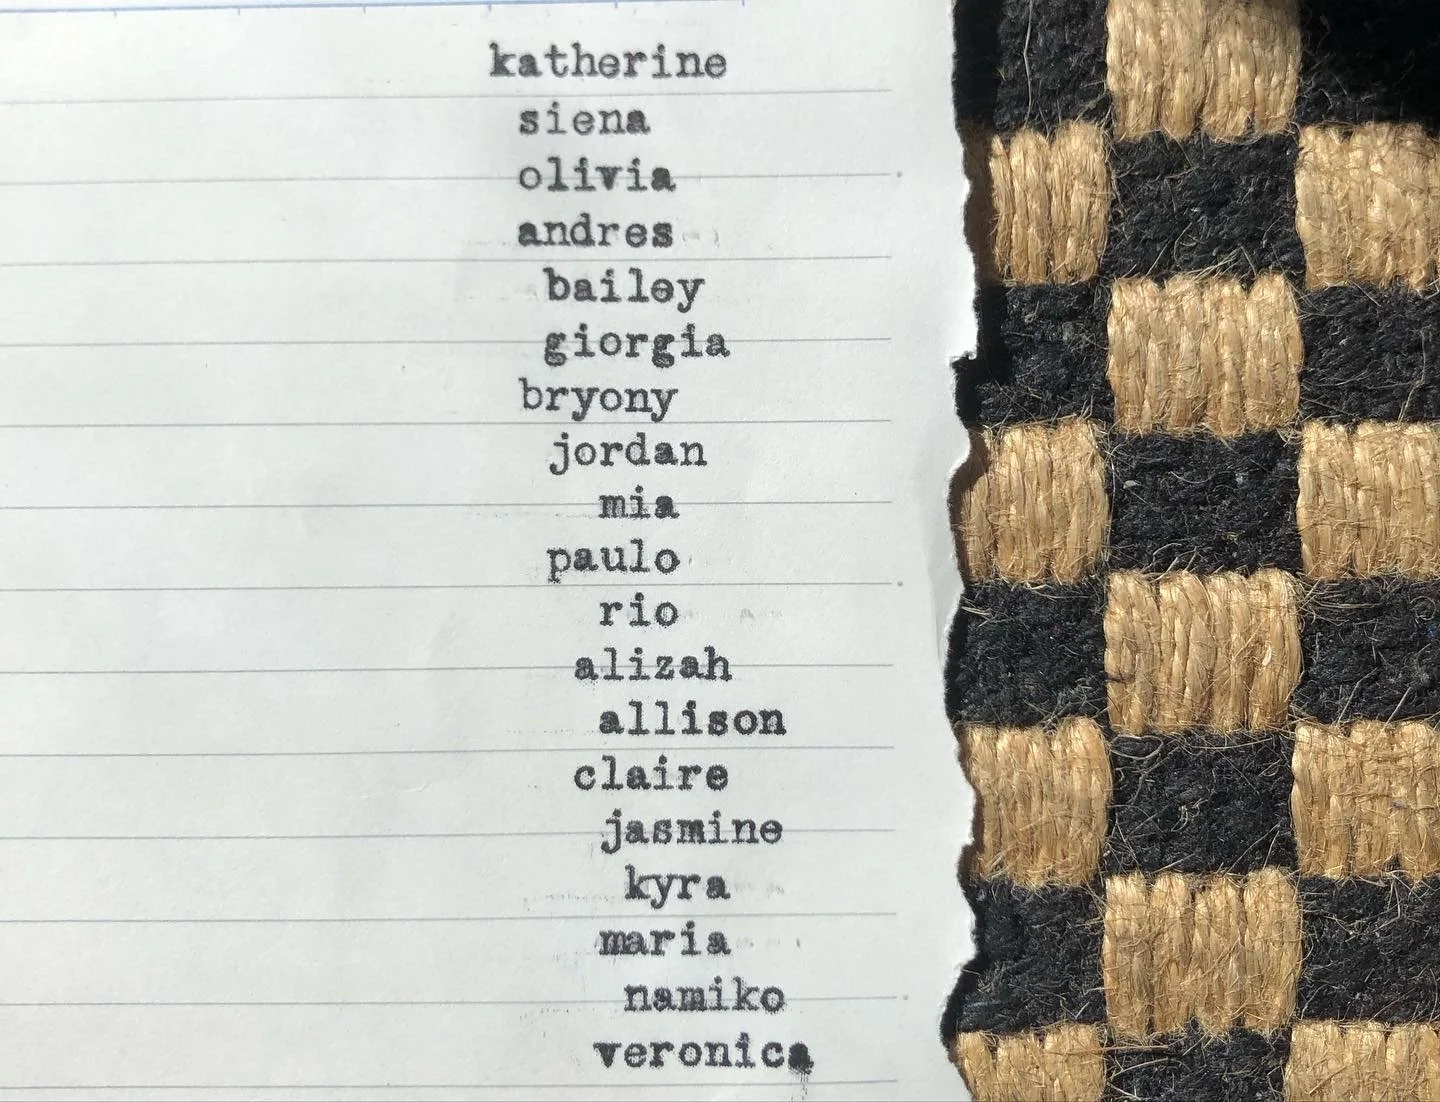 katherine
siena
olivia
andres
bailey
giorgia
bryony
jordan
mia
paulo
rio
alizah
allison
claire
jasmine
kyra
maria
namiko
veronica